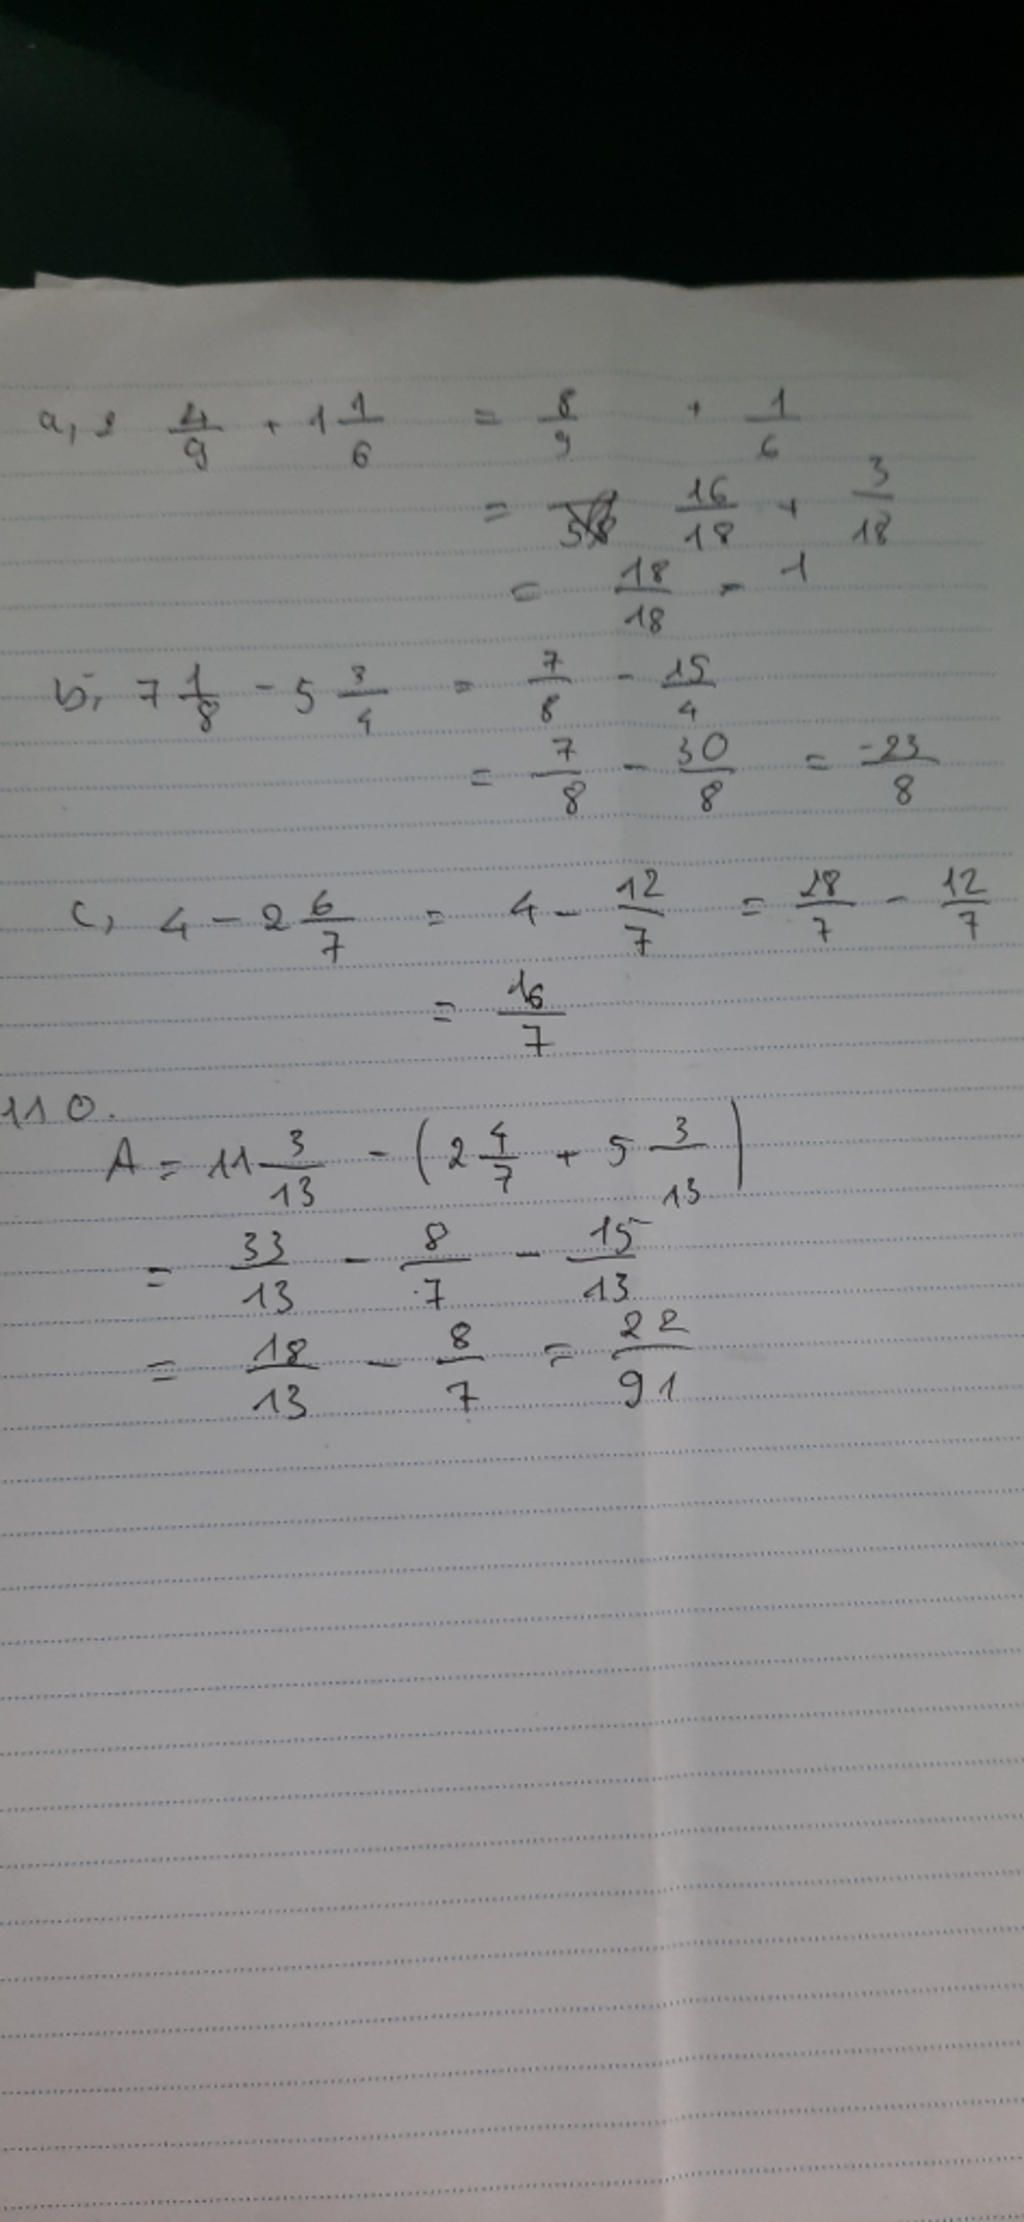 a, 2 4/9 + 1 1/6 = 8/9 + 1/6
= 16/18 + 3/18
= 18/18 = 1
b, 7 1/8 - 5 3/4 = 7/8 - 15/4
= 7/8 - 30/8 = -23/8
c, 4 - 2 6/7 = 4 - 12/7 = 28/7 - 12/7
= 16/7
110.
A = 11 3/13 - (2 4/7 + 5 3/13)
= 33/13 - 8/7 - 15/13
= 18/13 - 8/7 = 22/91